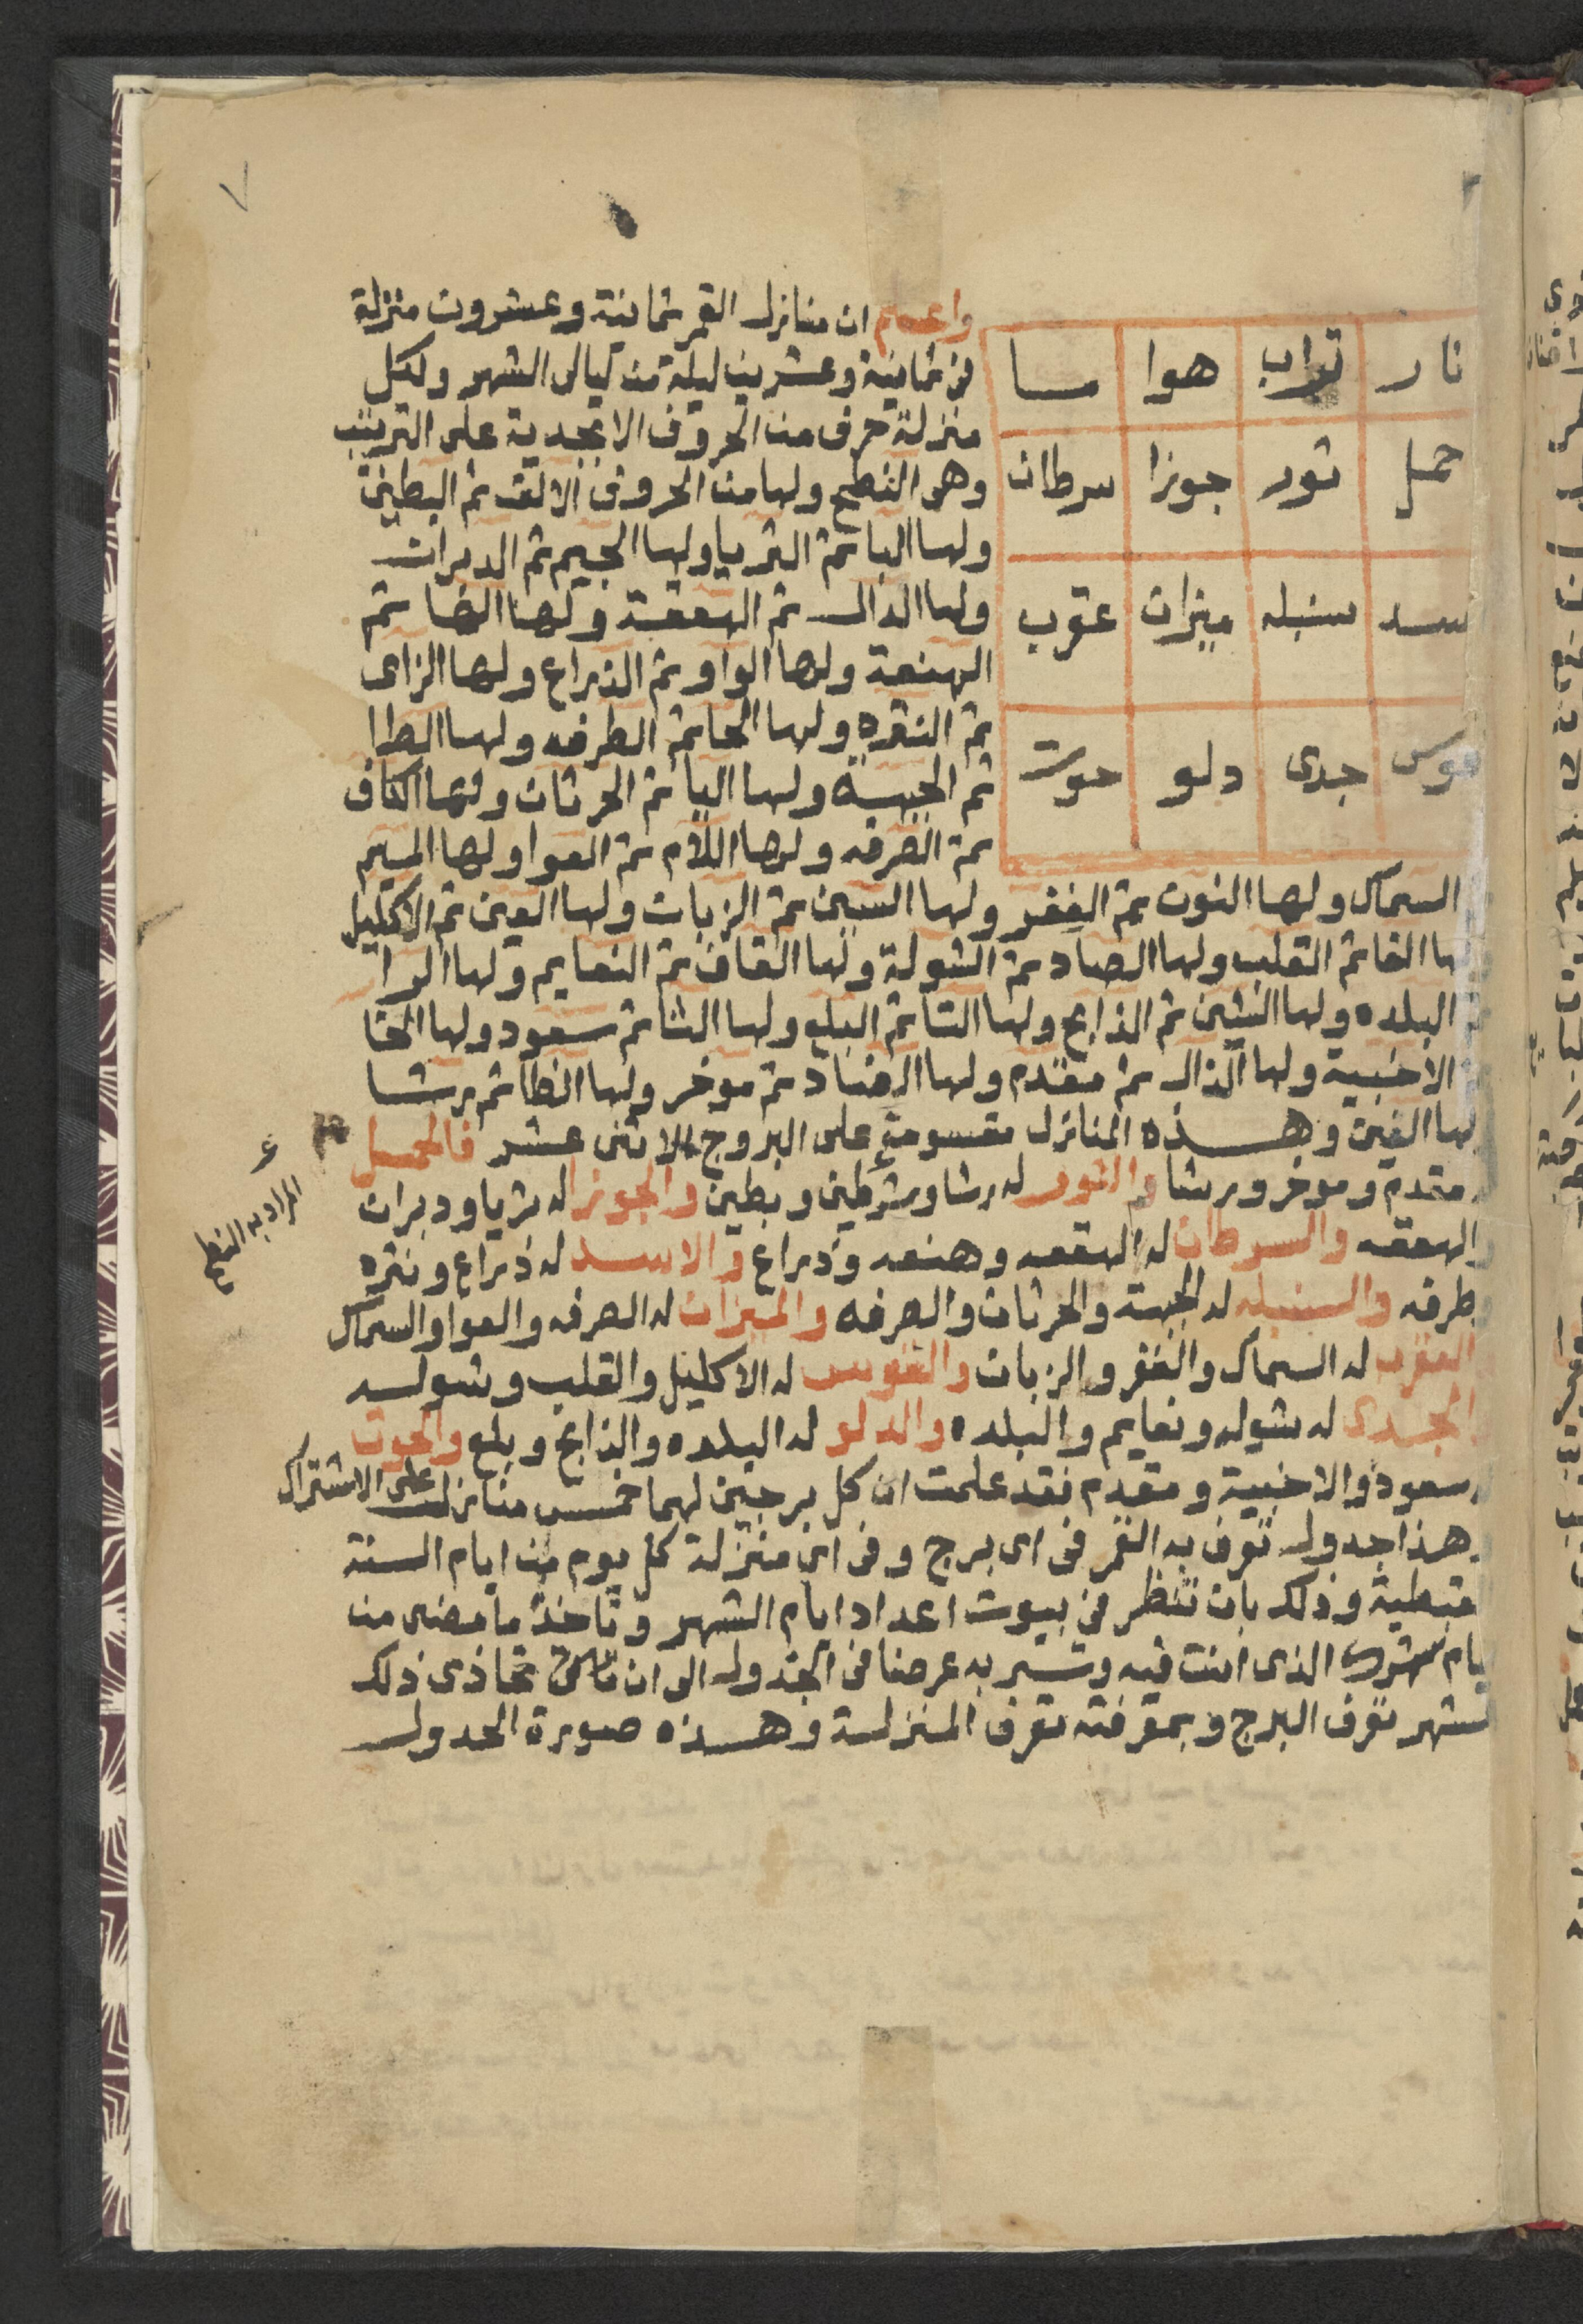 ٧
نار تراب هوا ما
حمل ثور جوزا سرطان
سد سنبله ميزان عقرب
قوس جدى دلو حوت
واعلم ان منازل القمر ثمانية وعشرون منزلة
فى ثمانية وعشرين ليلة من ليالى الشهر ولكل
منزلة حرف من الحروف الابجدية على الترتيب
وهى النطح ولها من الحروف الالف ثم البطين
ولها البا ثم الثريا ولها الجيم ثم الدبران
ولها الدال ثم الهقعة ولها الها ثم
الهنعة ولها الواو ثم الذراع ولها الزاى
ثم النثره ولها الحا ثم الطرفه ولها الطا
ثم الجبهة ولها اليا ثم الخرثان ولها الكاف
ثم الصرفه ولها اللام ثم العوا ولها الميم
السماك ولها النون ثم الغفر ولها السين ثم الزبان ولها العين ثم الاكليل
ها الفا ثم القلب ولها الصاد ثم الشولة ولها القاف ثم النعايم ولها الرا
البلده ولها الشين ثم الذابح ولها التا ثم البلع ولها الثا ثم سعود ولها الخا
الاخبية ولها الذال ثم مقدم ولها الضاد ثم موخر ولها الظا ثم رشا
لها الغين وهذه المنازل مقسومة على البروج الاثنى عشر فالحمل
مقدم وموخر ورشا والثور له رشا وشرطين وبطين والجوزا له ثريا ودبران
والهقعه والسرطان له الهقعه وهنعه وذراع والاسد له ذراع ونثره
وطرفه والسنبله له الجبهة والخرثان والصرفه والميزان له الصرفه والعوا والسماك
العقرب له السماك والغفر والزبان والقوس له الاكليل والقلب وشوله
الجدى له شوله ونعايم والبلده والدلو له البلده والذابح وبلع والحوت
سعود والاخبية ومقدم فقد علمت ان كل برجين لهما خمس منازل على الاشتراك
هذا جدول تعرف به القمر فى اى برج وفى اى منزلة كل يوم من ايام السنة
قبطية وذلك بان تنظر فى بيوت اعداد ايام الشهر وتاخذ ما مضى من
يام شهرك الذى انت فيه وتسير به عرضا فى الجدول الى ان تاتى تحاذى ذلك
لشهر تعرف البرج وبمعرفته تعرف المنزلة وهذه صورة الجدول
المراد به النطح